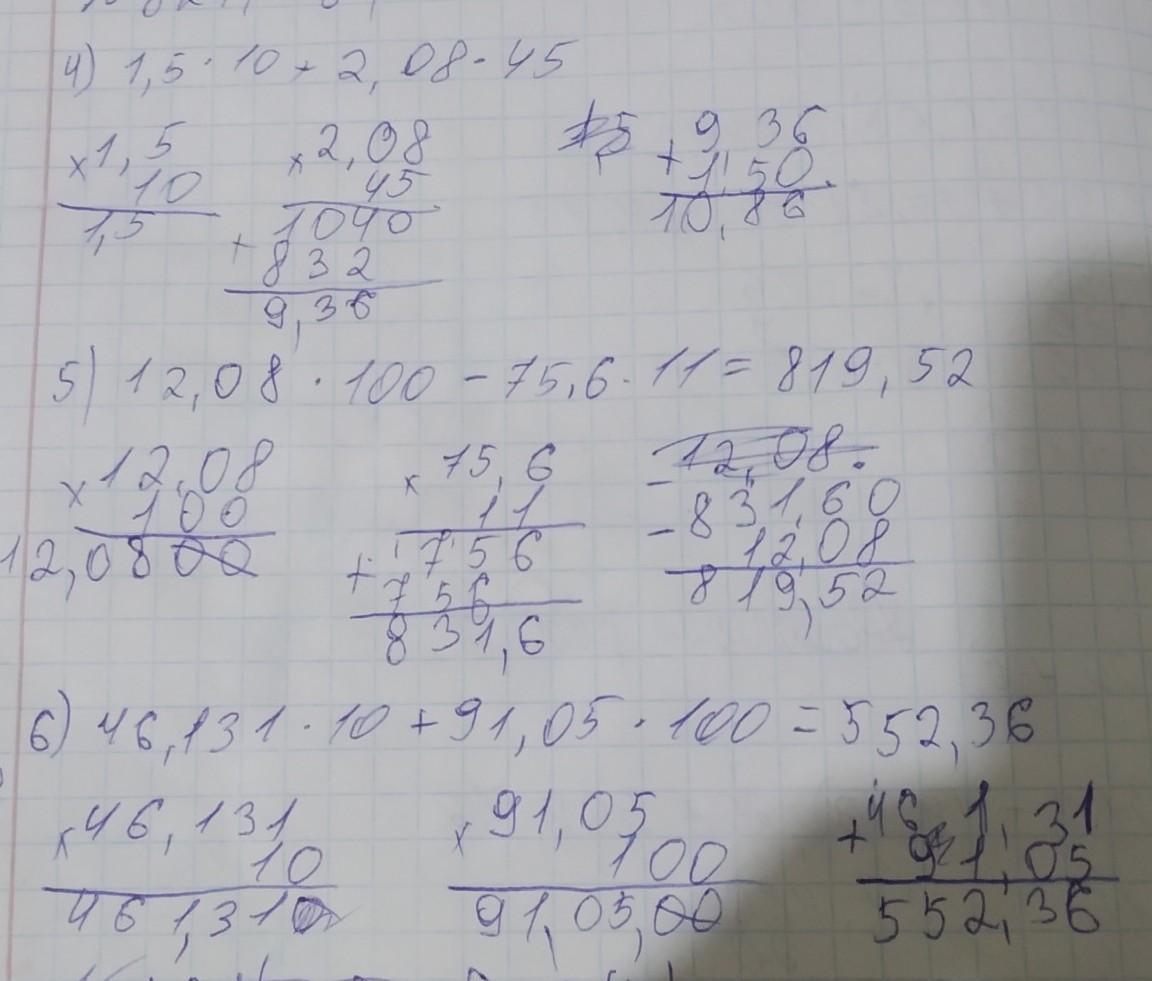 4) 1,5 · 10 + 2,08 · 45
× 1,5
10
1,5
× 2,08
45
1040
+ 832
9,36
+ 9,36
1,50
10,86
5) 12,08 · 100 - 75,6 · 11 = 819,52
× 12,08
100
12,0800
× 75,6
11
+ 756
756
831,6
- 12,08.
- 831,60
12,08
819,52
6) 46,131 · 10 + 91,05 · 100 = 552,36
× 46,131
10
461,310
× 91,05
100
91,05,00
+ 461,31
91,05
552,36